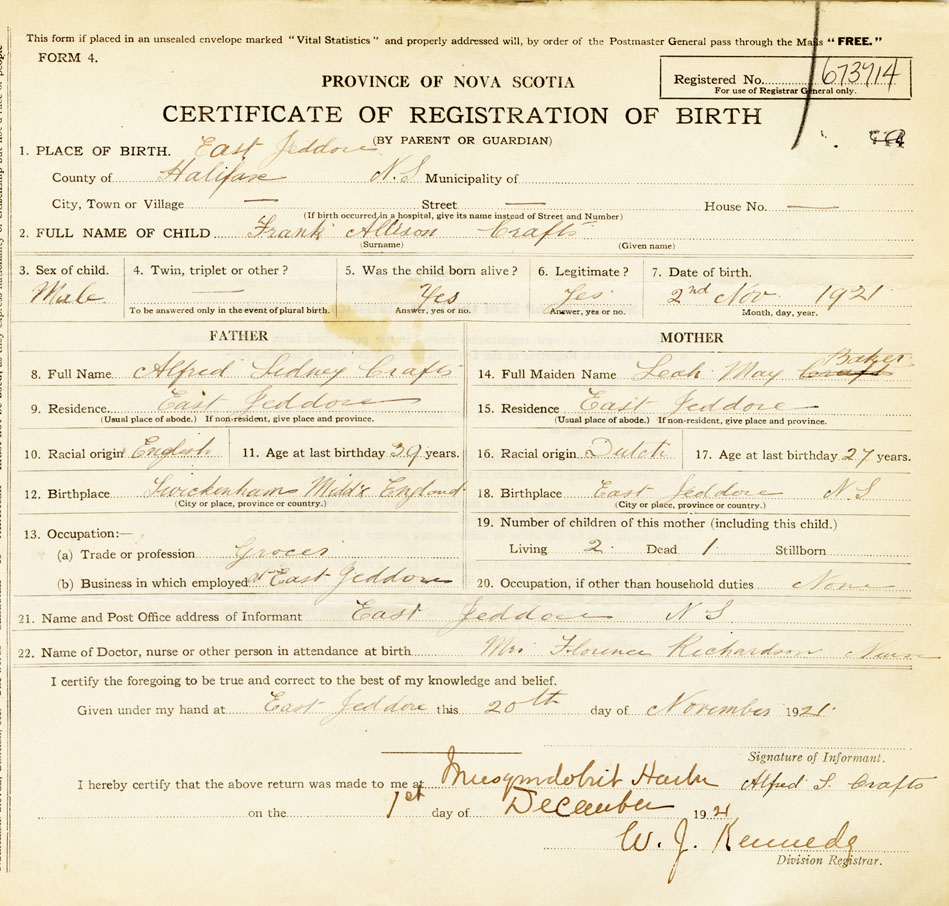 This form if placed in an unsealed envelope marked "Vital Statistics" and properly addressed will, by order of the Postmaster General pass through the Mails "FREE."
FORM 4.
PROVINCE OF NOVA SCOTIA
Registered No. 673914
For use of Registrar General only.
CERTIFICATE OF REGISTRATION OF BIRTH
(BY PARENT OR GUARDIAN)
1. PLACE OF BIRTH. East Jeddore
County of Halifax N.S Municipality of
City, Town or Village — Street — House No. —
(If birth occurred in a hospital, give its name instead of Street and Number)
2. FULL NAME OF CHILD Frank Allison Crafts
(Surname) (Given name)
3. Sex of child. 4. Twin, triplet or other? 5. Was the child born alive? 6. Legitimate? 7. Date of birth.
Male — Yes Yes 2nd Nov. 1921
To be answered only in the event of plural birth. Answer, yes or no. Answer, yes or no. Month, day, year.
FATHER MOTHER
8. Full Name Alfred Sidney Crafts 14. Full Maiden Name Leah May Crafts Baker
9. Residence. East Jeddore 15. Residence East Jeddore
(Usual place of abode.) If non-resident, give place and province. (Usual place of abode.) If non-resident, give place and province.
10. Racial origin English 11. Age at last birthday 39 years. 16. Racial origin Dutch 17. Age at last birthday 27 years.
12. Birthplace Twickenham Middx England 18. Birthplace East Jeddore N.S
(City or place, province or country.) (City or place, province or country.)
13. Occupation:— 19. Number of children of this mother (including this child.)
(a) Trade or profession Grocer Living 2 Dead 1 Stillborn
(b) Business in which employed at East Jeddore 20. Occupation, if other than household duties None
21. Name and Post Office address of Informant East Jeddore N S
22. Name of Doctor, nurse or other person in attendance at birth Mrs Florence Richardson Nurse
I certify the foregoing to be true and correct to the best of my knowledge and belief.
Given under my hand at East Jeddore this 20th day of November 1921
Signature of Informant.
I hereby certify that the above return was made to me at Musquodoboit Harbr Alfred S. Crafts
on the 1st day of December 1921
W. J. Kennedy
Division Registrar.